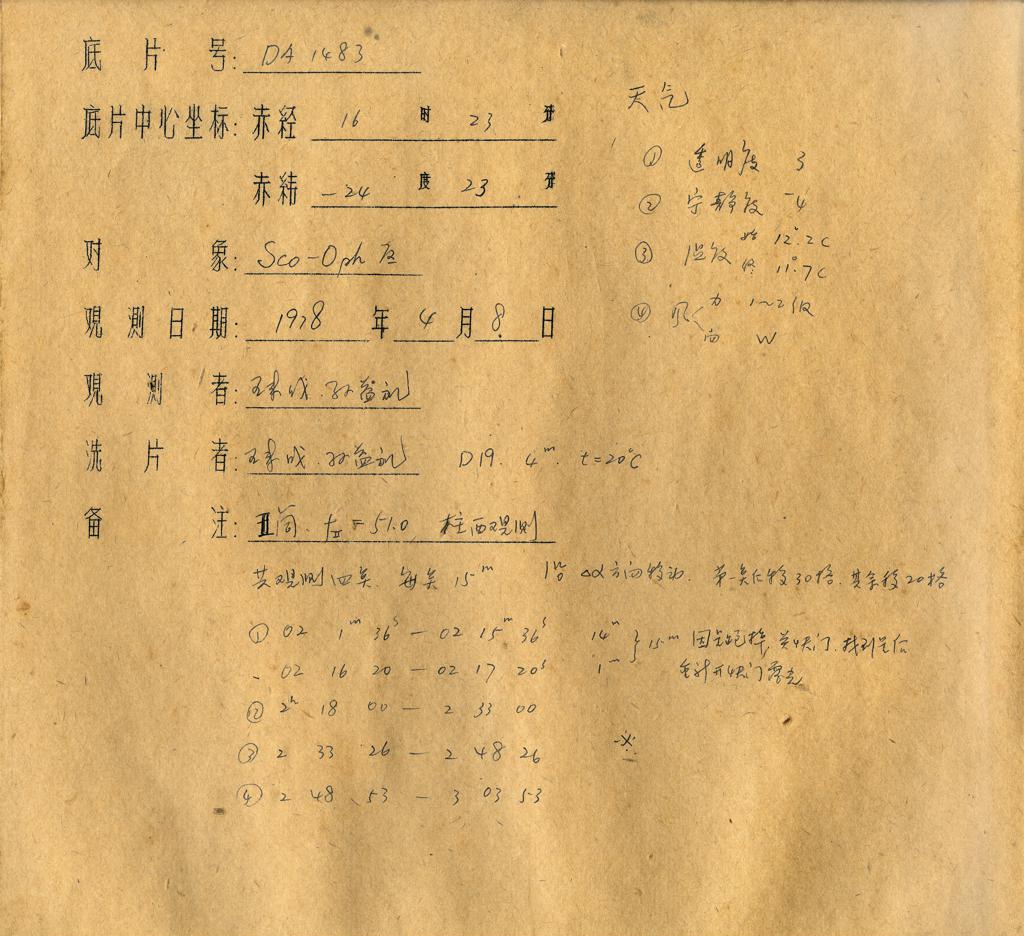 底片号: DA 1483
底片中心坐标: 赤经 16 时 23 分
赤纬 -24 度 23 分
对象: Sco-Oph 区
观测日期: 1978 年 4 月 8 日
观测者: 孙益礼
洗片者: 孙益礼 D19. 4ᵐ. t=20°C
备注: Ⅱ筒. fⅡ=51.0 柱西观测
共观测四矣. 每矣 15ᵐ Δα方向移动. 第一矣后移30格. 其余移20格
① 02 1ᵐ 36ˢ — 02 15ᵐ 36ˢ 14ᵐ } 15ᵐ 因星跑掉, 关快门. 找到星后
02 16 20 — 02 17 20ˢ 1ᵐ 开快门露光
② 2ʰ 18 00 — 2 33 00
③ 2 33 26 — 2 48 26
④ 2 48 53 — 3 03 53
天气
① 透明度 3
② 宁静度 -4
③ 温度 始 12°.2C
终 11°.7C
④ 风 力 1~2级
向 W